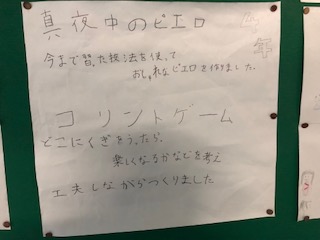 真夜中のピエロ
年
今まで習った技法を使って
おしゃれなピエロを作りました。
コリントゲーム
どこにくぎをうったら、
楽しくなるかなどを考え
工夫しながらつくりました